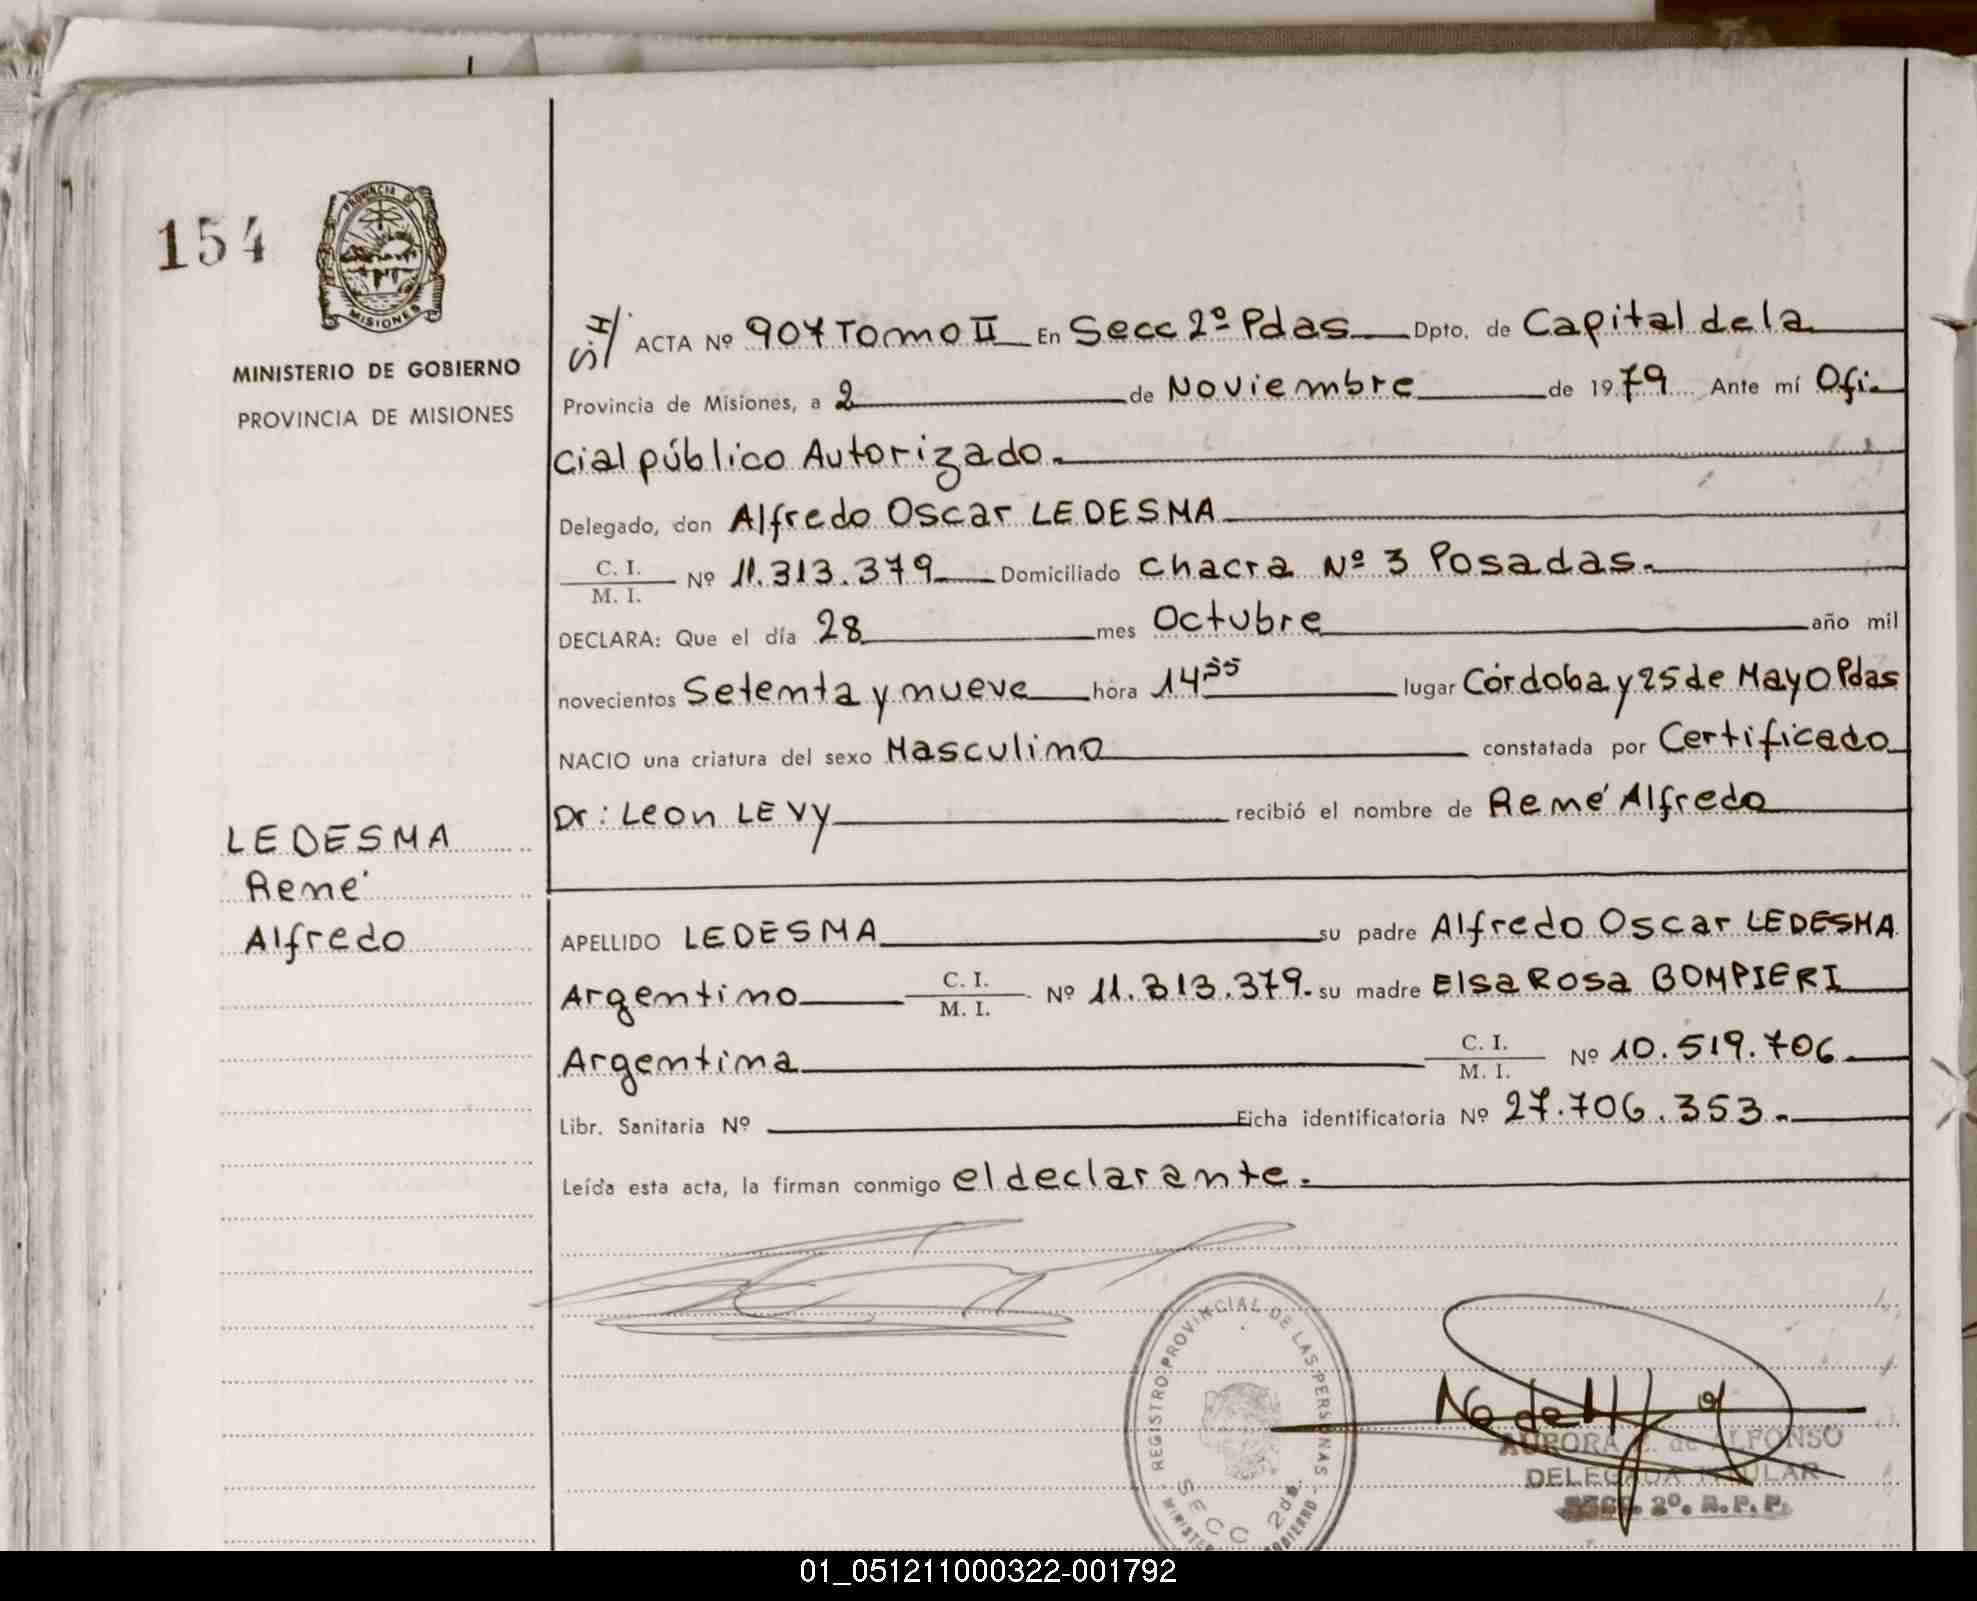 154
PROVINCIA DE
MISIONES
MINISTERIO DE GOBIERNO
PROVINCIA DE MISIONES
LEDESMA
René
Alfredo
S.H/ ACTA Nº 907 Tomo II En Secc 2º Pdas Dpto. de Capital de la
Provincia de Misiones, a 2 de Noviembre de 1979 Ante mí Ofi
cial público Autorizado.
Delegado, don Alfredo Oscar LEDESMA
C. I.
M. I. Nº 11.313.379 Domiciliado chacra Nº 3 Posadas.
DECLARA: Que el día 28 mes Octubre año mil
novecientos Setenta y nueve hora 14 35 lugar Córdoba y 25 de Mayo Pdas
NACIO una criatura del sexo Masculino constatada por Certificado
Dr: Leon LEVY recibió el nombre de René Alfredo
APELLIDO LEDESMA su padre Alfredo Oscar LEDESMA
Argentino C. I.
M. I. Nº 11.313.379. su madre Elsa Rosa BOMPIERI
Argentina C. I.
M. I. Nº 10.519.706
Libr. Sanitaria Nº Ficha identificatoria Nº 27.706.353.
Leída esta acta, la firman conmigo el declarante.
REGISTRO PROVINCIAL DE LAS PERSONAS
SECC 2da.
AURORA de ALFONSO
DELEGADA TITULAR
SECC. 2º. R.P.P.
01_051211000322-001792